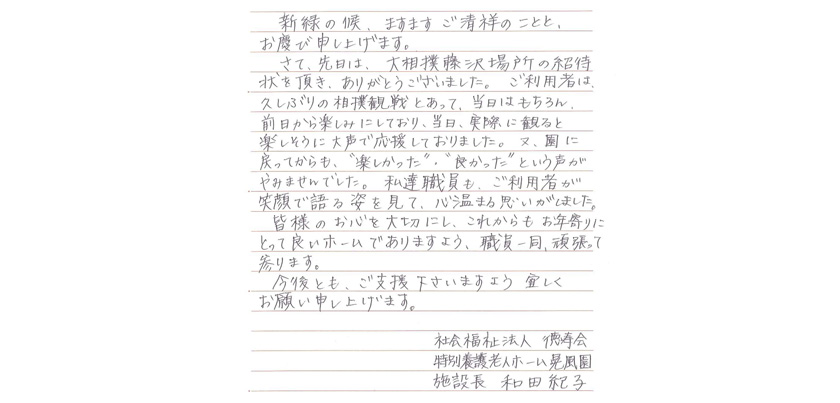 新緑の候、ますます ご清祥のことと、
お慶び申し上げます。
さて、先日は、大相撲藤沢場所の招待
状を頂き、ありがとうございました。ご利用者は、
久しぶりの相撲観戦とあって、当日はもちろん、
前日から楽しみにしており、当日、実際に観ると
楽しそうに大声で応援しておりました。又、園に
戻ってからも、"楽しかった"・"良かった"という声が
やみませんでした。私達職員も、ご利用者が
笑顔で語る姿を見て、心温まる思いがしました。
皆様のお心を大切にし、これからもお年寄りに
とって良いホームでありますよう、職員一同、頑張って
参ります。
今後とも、ご支援下さいますよう宜しく
お願い申し上げます。
社会福祉法人 徳寿会
特別養護老人ホーム晃風園
施設長 和田紀子